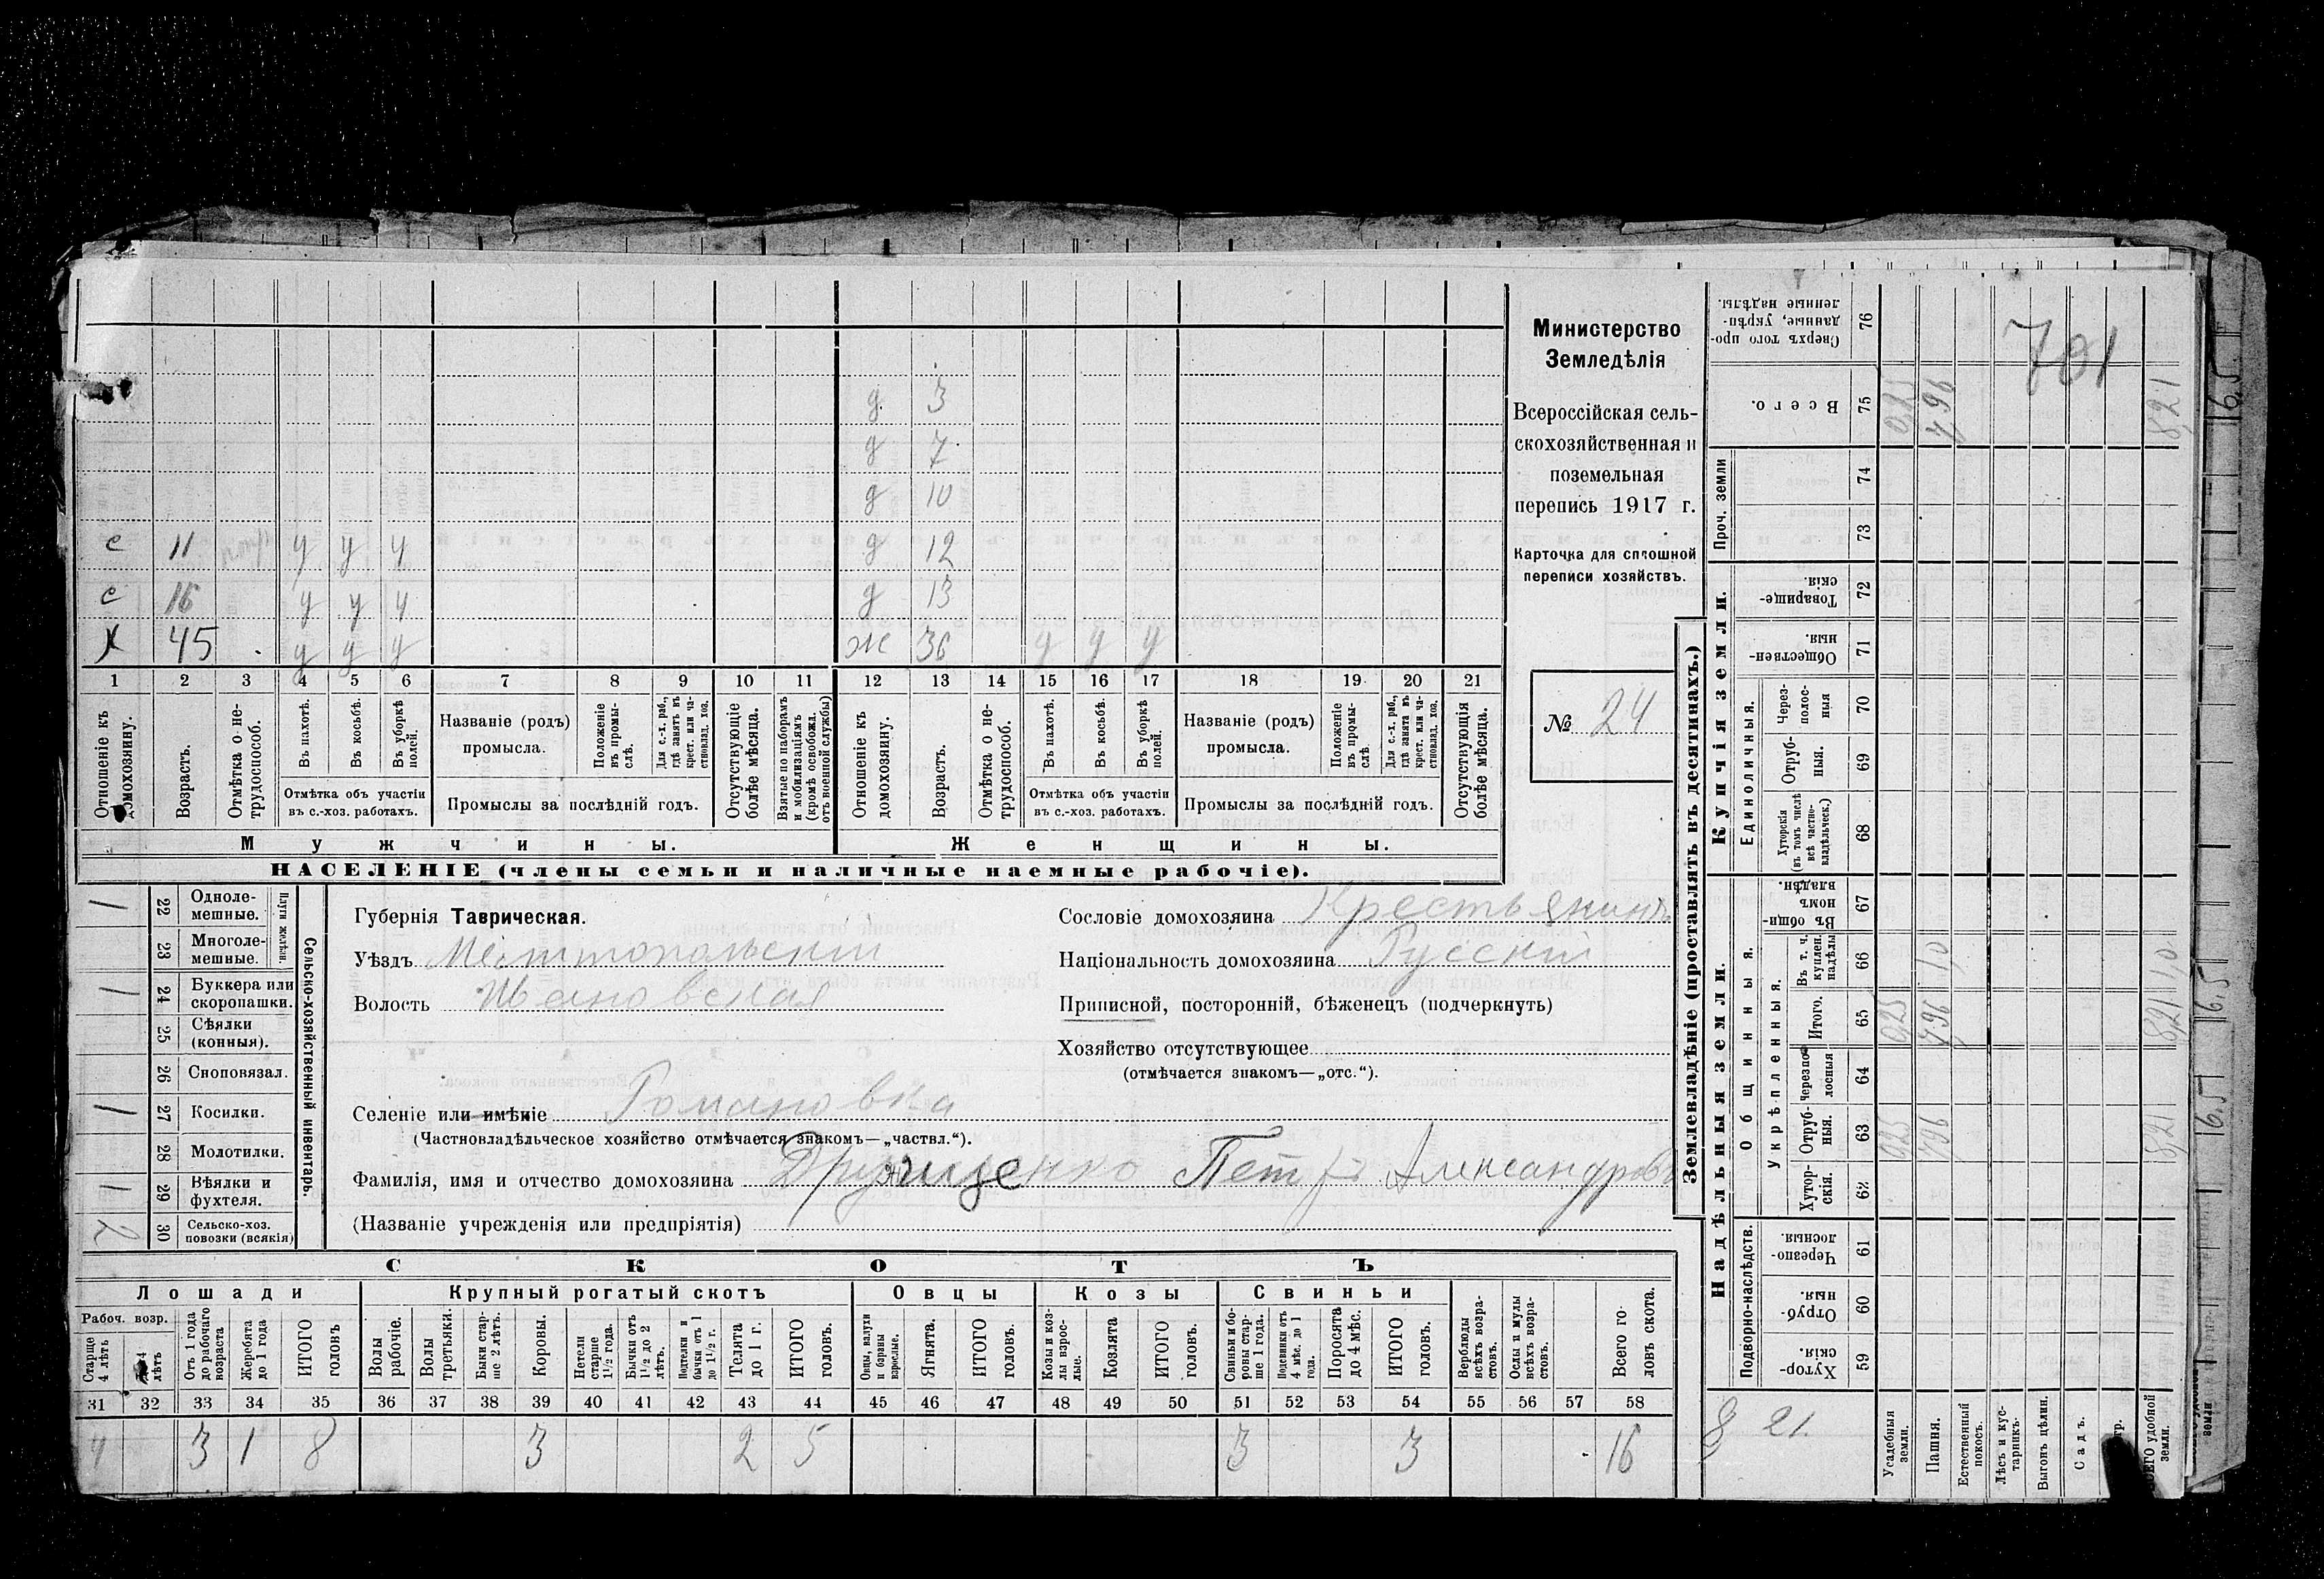 д 3
д 7
д 10
с 11 у у у д 12
с 16 у у у д 13
х 45 у у у ж 36 у у у
1 2 3 4 5 6 7 8 9 10 11 12 13 14 15 16 17 18 19 20 21
Отношеніе къ домохозяину.
Возрастъ.
Отмѣтка о нетрудоспособ.
Въ пахотѣ.
Въ косьбѣ.
Въ уборкѣ полей.
Отмѣтка объ участіи
въ с.-хоз. работахъ.
Названіе (родъ)
промысла.
Положеніе въ промыслѣ.
Для с.-х. раб., гдѣ занятъ въ крест. или частновлад. хоз.
Промыслы за послѣдній годъ.
Отсутствующіе болѣе мѣсяца.
Взятые по наборамъ и мобилизаціямъ (кромѣ освобожд. отъ военной службы)
Отношеніе къ домохозяину.
Возрастъ.
Отмѣтка о нетрудоспособ.
Въ пахотѣ.
Въ косьбѣ.
Въ уборкѣ полей.
Отмѣтка объ участіи
въ с.-хоз. работахъ.
Названіе (родъ)
промысла.
Положеніе въ промыслѣ.
Для с.-х. раб., гдѣ занята въ крест. или частновлад. хоз.
Промыслы за послѣдній годъ.
Отсутствующія болѣе мѣсяца.
Мужчины.
Женщины.
НАСЕЛЕНІЕ (члены семьи и наличные наемные рабочіе).
Министерство
Земледѣлія
Всероссійская сель-
скохозяйственная и
поземельная
перепись 1917 г.
Карточка для сплошной
переписи хозяйствъ.
№ 24
1 22 Одноле-
мешные.
23 Многоле-
мешные.
Плуги желѣзн.
1 24 Буккера или
скоропашки.
25 Сѣялки
(конныя).
26 Сноповязал.
1 27 Косилки.
28 Молотилки.
1 29 Вѣялки и
фухтеля.
2 30 Сельско-хоз.
повозки (всякія)
Сельско-хозяйственный инвентарь.
Губернія Таврическая.
Уѣздъ Мелитопольскій
Волость Ивановская
Селеніе или имѣніе Романовка
(Частновладѣльческое хозяйство отмѣчается знакомъ—„частвл.“).
Фамилія, имя и отчество домохозяина Петръ Александров
(Названіе учрежденія или предпріятія)
Сословіе домохозяина Крестьянинъ
Національность домохозяина Русскій
Приписной, посторонній, бѣженецъ (подчеркнуть)
Хозяйство отсутствующее
(отмѣчается знакомъ—„отс.“).
СКОТЪ
Лошади
Крупный рогатый скотъ
Овцы
Козы
Свиньи
Рабоч. возр.
Старше 4 лѣтъ
4 лѣтъ
Отъ 1 года до рабочаго возраста
Жеребята до 1 года
ИТОГО головъ
Волы рабочіе.
Волы третьяки.
Быки старше 2 лѣтъ.
Коровы.
Нетели старше 1½ года.
Бычки отъ 1½ до 2 лѣтъ.
Подтелки и бычки отъ 1 до 1½ г.
Телята до 1 г.
ИТОГО головъ.
Овцы, валухи и бараны взрослые.
Ягнята.
ИТОГО головъ.
Козы и козлы взрослые.
Козлята
ИТОГО головъ.
Свиньи и боровы старше 1 года.
Подсвинки отъ 4 мѣс. до 1 года.
Поросята до 4 мѣс.
ИТОГО головъ.
Верблюды всѣхъ возрастовъ.
Ослы и мулы всѣхъ возрастовъ.
Всего головъ скота.
31 32 33 34 35 36 37 38 39 40 41 42 43 44 45 46 47 48 49 50 51 52 53 54 55 56 57 58
4 3 1 8 3 2 5 3 3 16
Землевладѣніе (проставлять въ десятинахъ.)
Надѣльныя земли.
Купчія земли.
Проч. земли
Подворно-наслѣдств.
Общинныя.
Укрѣпленныя.
Единоличныя.
Сверхъ того проданные, укрѣпленные надѣлы. 76
Всего. 75 0,25 7,96 8,21
701
74
73
Товарищескія. 72
Общественныя. 71
Черезполосныя 70
Отрубныя. 69
Хуторскія (въ томъ числѣ всѣ частновладѣльческ.) 68
Въ общинномъ владѣн. 67
Въ т. ч. куплен. надѣлы 66 1,0 1,0
Итого. 65 0,25 7,96 8,21
Черезполосныя 64
Отрубныя. 63 0,25 7,96 8,21
Хуторскія. 62
Черезполосныя 61
Отрубныя. 60
Хуторскія. 59
8 21.
Усадебныя земли.
Пашня.
Естественный покосъ.
Лѣсъ и кустарникъ.
Выгонъ цѣлин.
Садъ.
удобной земли.
16,5
16,5
16,5